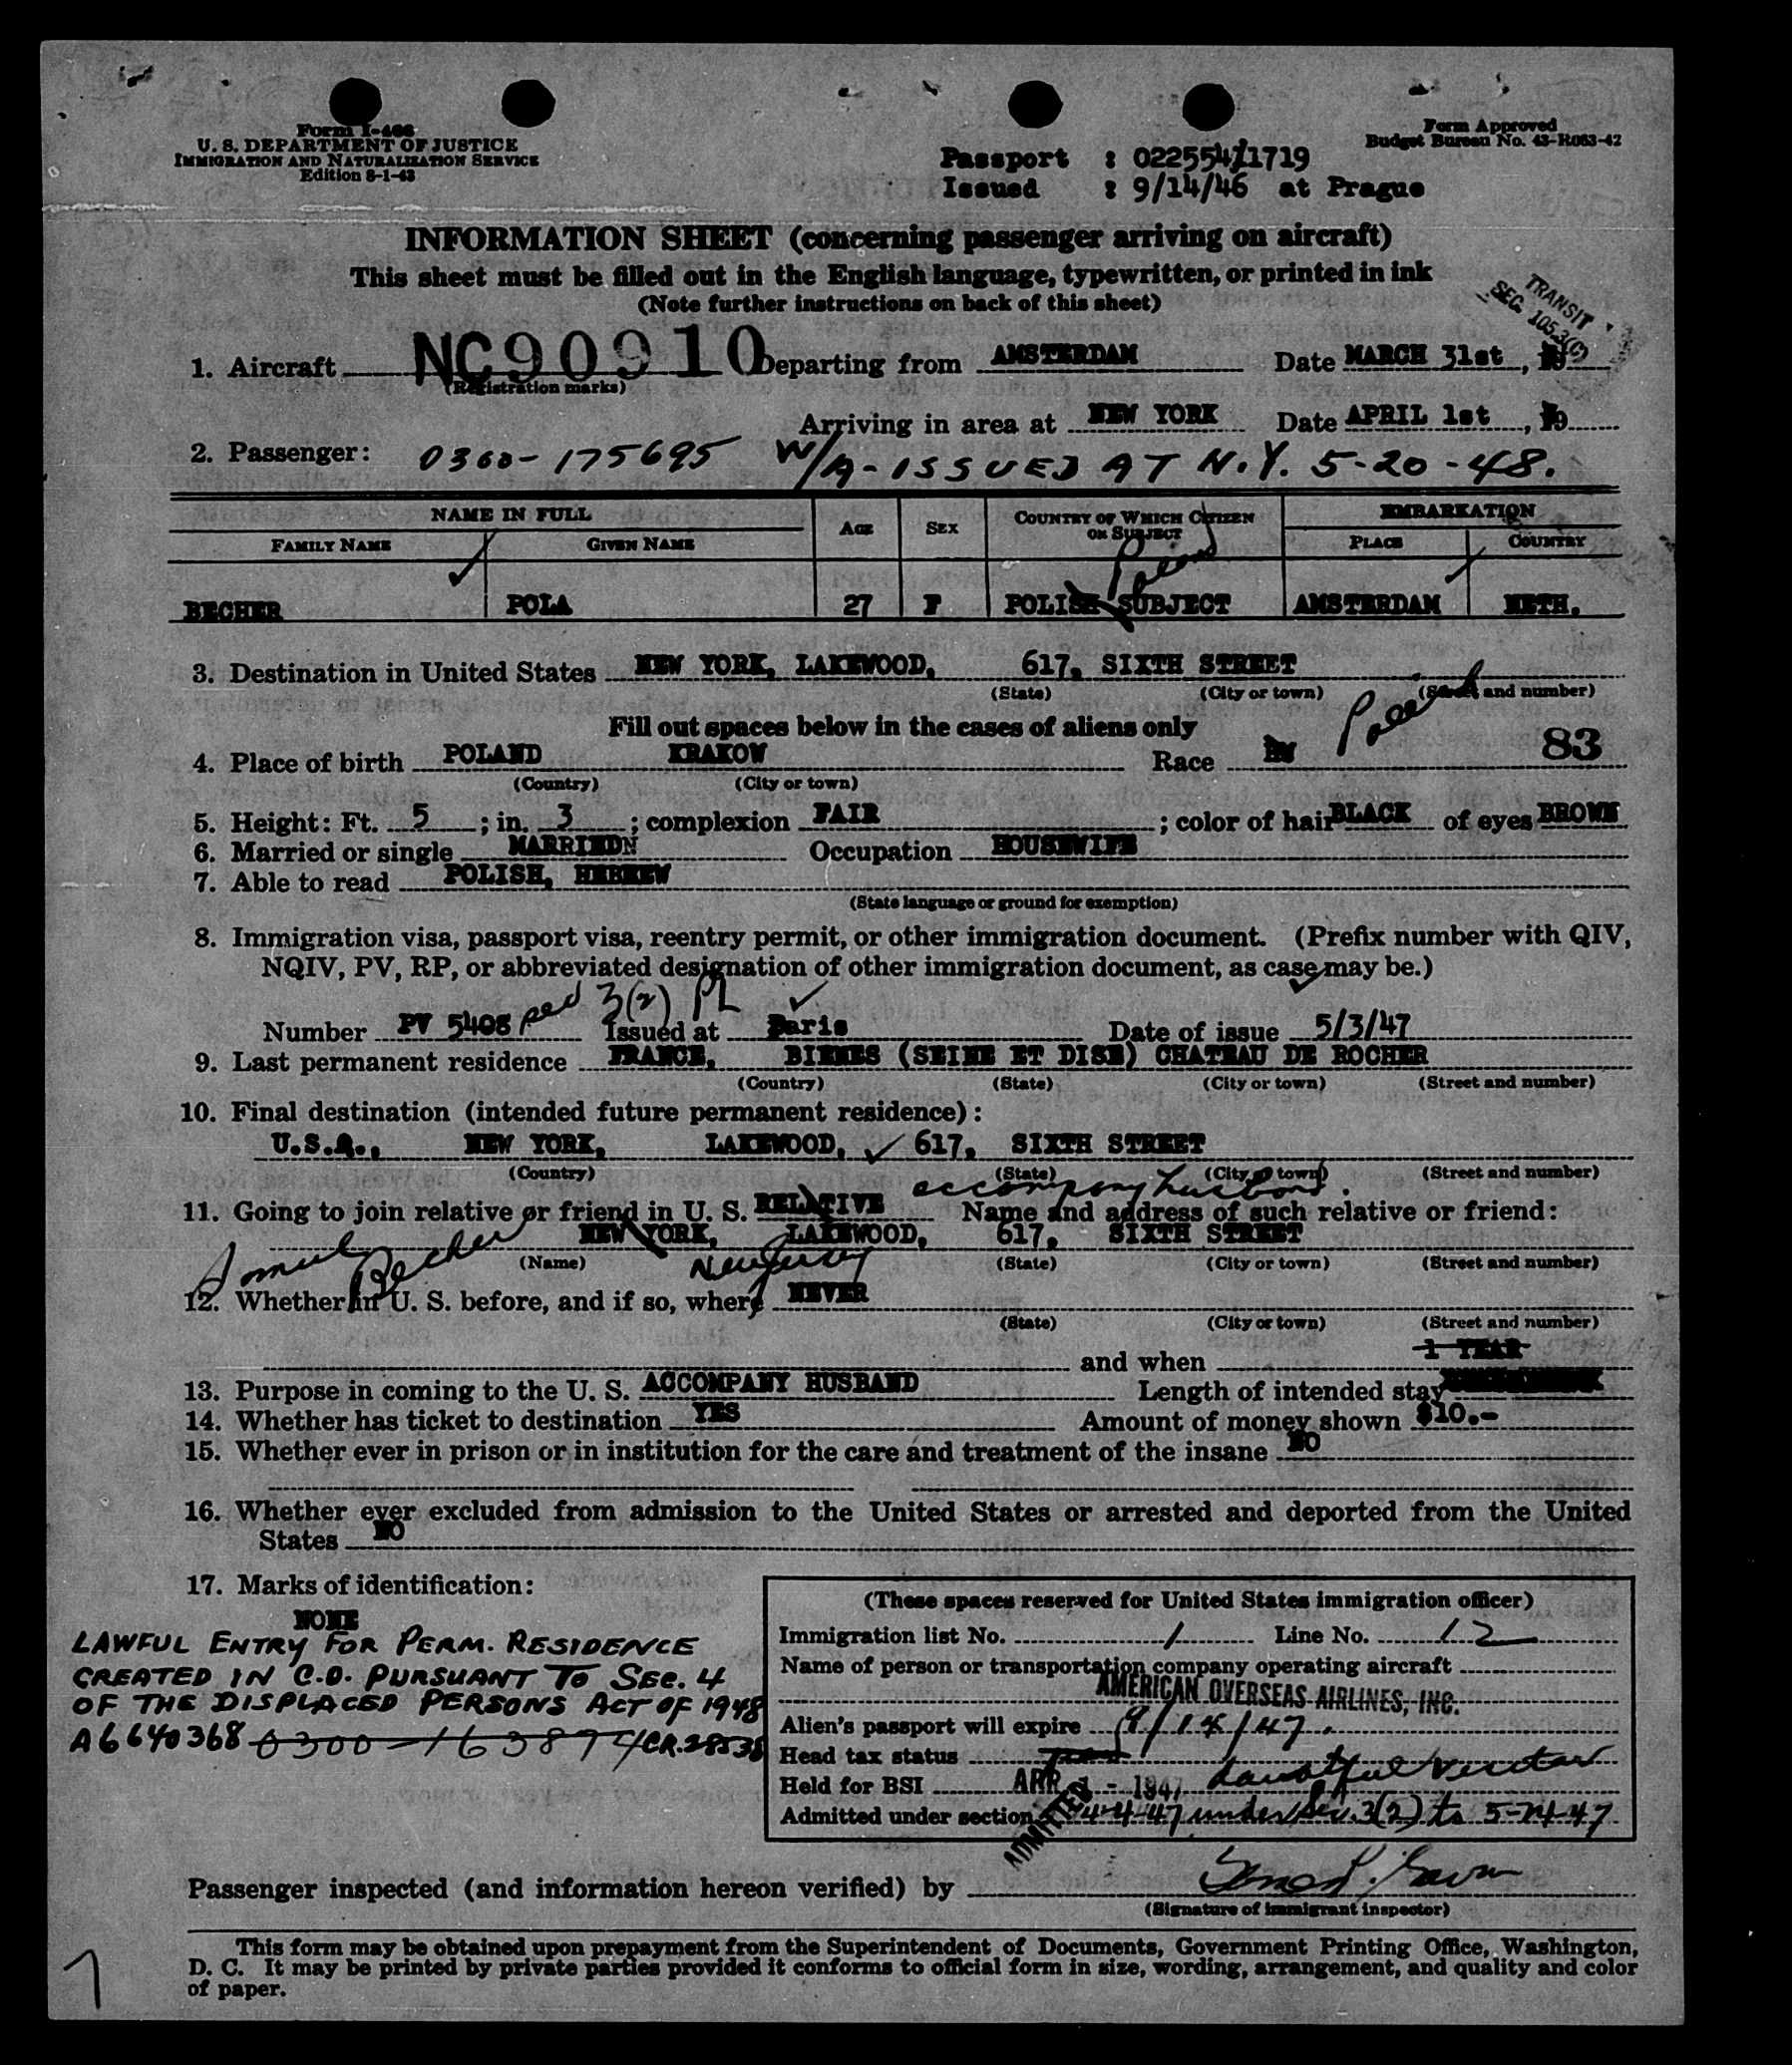 Form I-466
U. S. DEPARTMENT OF JUSTICE
IMMIGRATION AND NATURALIZATION SERVICE
Edition 8-1-43
Form Approved
Budget Bureau No. 43-R063-42
Passport : 022554/1719
Issued : 9/14/46 at Prague
INFORMATION SHEET (concerning passenger arriving on aircraft)
This sheet must be filled out in the English language, typewritten, or printed in ink
(Note further instructions on back of this sheet)
TRANSIT
SEC. 105.3(c)
1. Aircraft NC90910 Departing from AMSTERDAM Date MARCH 31st, 19
(Registration marks)
Arriving in area at NEW YORK Date APRIL 1st, 19
2. Passenger: 0300-175695 W/A-ISSUED AT N.Y. 5-20-48.
NAME IN FULL AGE SEX COUNTRY OF WHICH CITIZEN OR SUBJECT EMBARKATION
FAMILY NAME GIVEN NAME PLACE COUNTRY
Poland
BECHER POLA 27 F POLISH SUBJECT AMSTERDAM NETH.
3. Destination in United States NEW YORK, LAKEWOOD, 617, SIXTH STREET
(State) (City or town) (Street and number)
Fill out spaces below in the cases of aliens only
4. Place of birth POLAND KRAKOW Race Polish 83
(Country) (City or town)
5. Height: Ft. 5 ; in. 3 ; complexion FAIR ; color of hair BLACK of eyes BROWN
6. Married or single MARRIEDN Occupation HOUSEWIFE
7. Able to read POLISH, HEBREW
(State language or ground for exemption)
8. Immigration visa, passport visa, reentry permit, or other immigration document. (Prefix number with QIV,
NQIV, PV, RP, or abbreviated designation of other immigration document, as case may be.)
3(2) PL
Number PV 5408 Issued at Paris Date of issue 5/3/47
9. Last permanent residence FRANCE, BIENES (SEINE ET DISE) CHATEAU DE ROCHER
(Country) (State) (City or town) (Street and number)
10. Final destination (intended future permanent residence):
U.S.A., NEW YORK, LAKEWOOD, 617, SIXTH STREET
(Country) (State) (City or town) (Street and number)
accompany husband.
11. Going to join relative or friend in U. S. RELATIVE Name and address of such relative or friend:
Becher NEW YORK, LAKEWOOD, 617, SIXTH STREET
New Jersey
(Name) (State) (City or town) (Street and number)
12. Whether in U. S. before, and if so, where NEVER
(State) (City or town) (Street and number)
and when
1 YEAR
13. Purpose in coming to the U. S. ACCOMPANY HUSBAND Length of intended stay
14. Whether has ticket to destination YES Amount of money shown $10.-
15. Whether ever in prison or in institution for the care and treatment of the insane NO
16. Whether ever excluded from admission to the United States or arrested and deported from the United
States NO
17. Marks of identification:
NONE
LAWFUL ENTRY FOR PERM. RESIDENCE
CREATED IN C.O. PURSUANT TO SEC. 4
OF THE DISPLACED PERSONS ACT OF 1948
A6640368 0300-163894/CR.28538
(These spaces reserved for United States immigration officer)
Immigration list No. 1 Line No. 12
Name of person or transportation company operating aircraft
AMERICAN OVERSEAS AIRLINES, INC.
Alien's passport will expire 9/14/47.
Head tax status
Held for BSI APR 1 - 1947 doubtful visitor
Admitted under section 4-4-47 under Sec. 3(2) to 5-24-47
ADMITTED
Passenger inspected (and information hereon verified) by
(Signature of immigrant inspector)
This form may be obtained upon prepayment from the Superintendent of Documents, Government Printing Office, Washington,
D. C. It may be printed by private parties provided it conforms to official form in size, wording, arrangement, and quality and color
of paper.